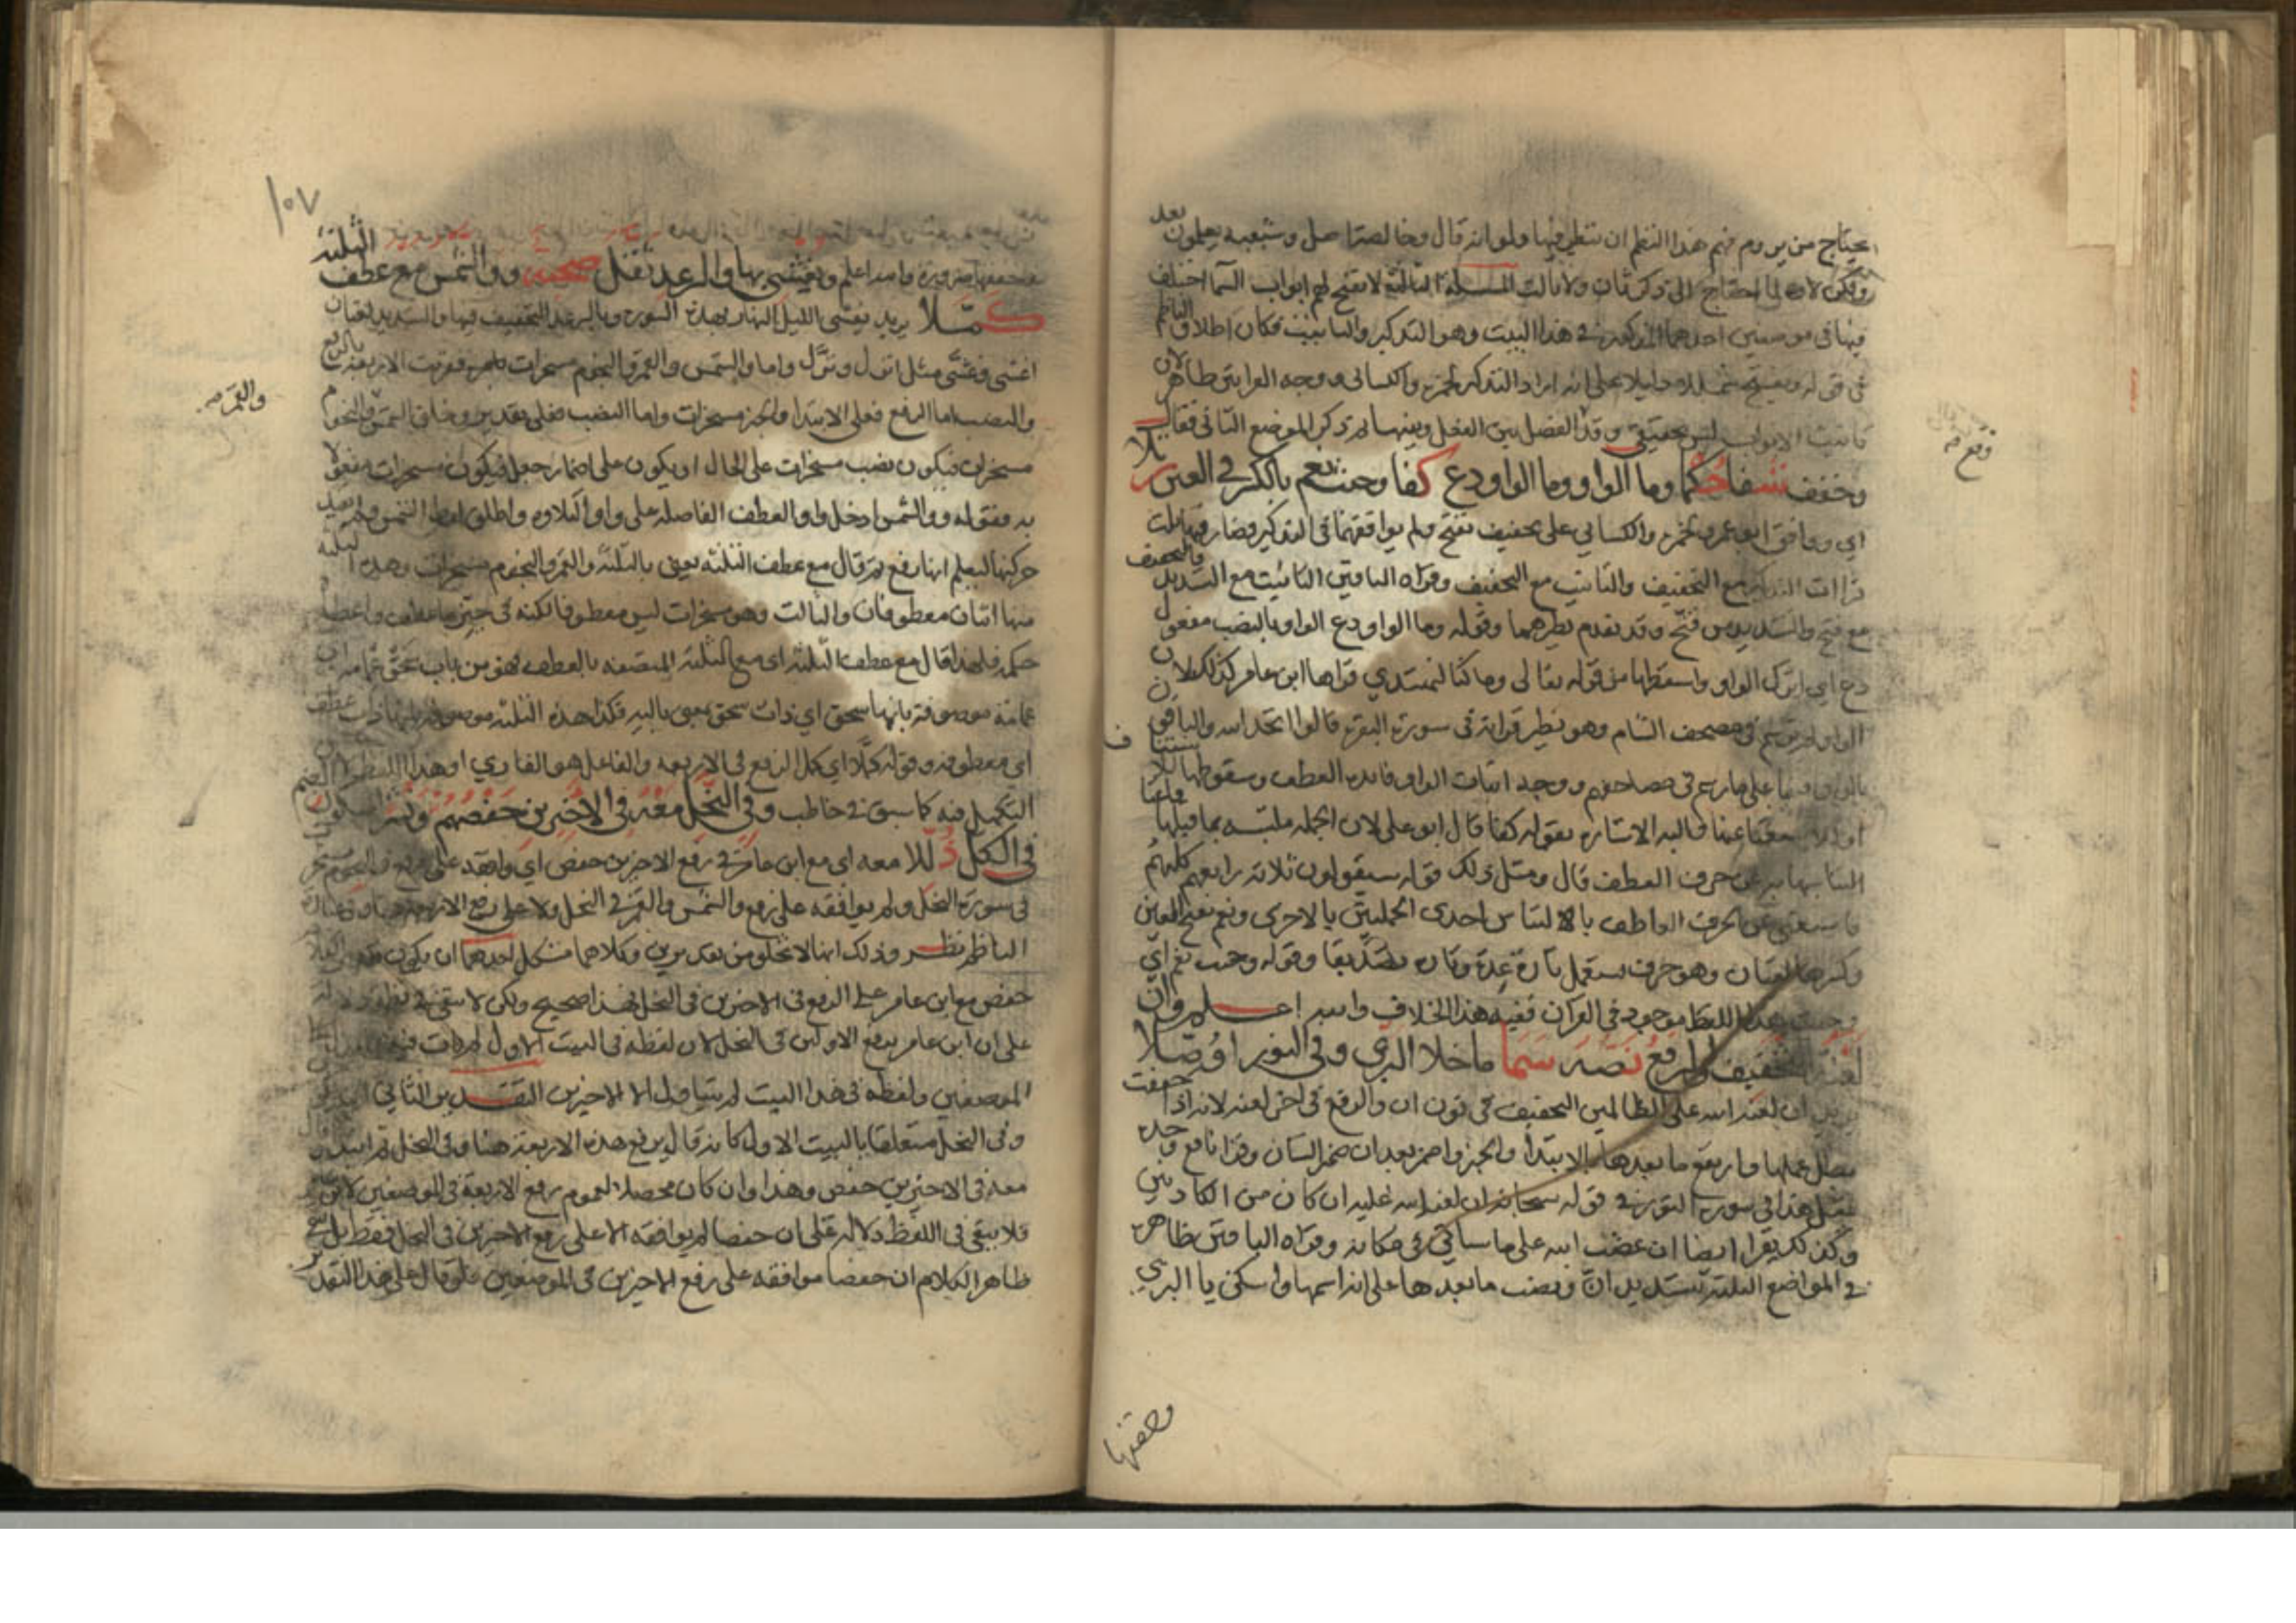 يحتاج من يروم فهم هذا النظم ان ينظر فيها ولو انه قال وخالصة اصل وشعبة يعلمون بعد
ولكن لا لما احتاج الى ذكر ثان ولا ثالث المسئلة الثالثة لا تفتح لهم ابواب السما اختلف
فيها في موضعين احدهما المذكور في هذا البيت وهو التذكير والتانيث فكان اطلاق الناظم
في قوله ويفتح شمللا دليلا على انه اراد التذكير لحمزة والكسائي ووجه القراتين ظاهر لان
تانيث الابواب ليس بحقيقي وقد الفصل بين الفعل وبينها ثم ذكر الموضع الثاني فقال
وخفف شفا حكما وما الواو وما الواو دع كفا وحيث نعم بالكسر في العين رتلا
اي ووافق ابو عمرو لحمزة والكسائي على تخفيف تفتح ولم يوافقهما في التذكير فصار فيها ثلث
قراات التذكير مع التخفيف والتانيث مع التخفيف وقراه الباقين التانيث مع التشديد
مع فتح والتشديد من فتح وقد تقدم نظيرهما وقوله وما الواو دع الواو بالنصب مفعول
دع اي اترك الواو واسقطها من قوله تعالى وما كنا لنهتدي قراها ابن عامر كذلك لان
الواو لم ترسم في مصحف الشام وهو نظير قراته في سورة البقرة قالوا اتخذ الله والباقون
بالواو على ما رسم في مصاحفهم ووجه اثبات الواو فائدة العطف وسقوطها
عنها فاليه الاشارة بقوله كفا قال ابو علي لان الجملة ملتبسة بما قبلها
التباسها به عن حرف العطف قال ومثل ذلك قوله سيقولون ثلاثة رابعهم كلبهم
فاستغنى عن الحرف العاطف بالالتباس احدى الجملتين بالاخرى ونعم بفتح العين
وكسرها لغتان وهو حرف يستعمل تارة عدة وتارة تصديقا وقوله وحيث نعم اي
وحيث هذا اللفظ موجود في القران ففيه هذا الخلاف والله اعلم
وان لعنة التخفيف والرفع نصه سما ما خلا البزي وفي النور اوصلا
يريد ان لعنة الله على الظالمين التخفيف في نون ان والرفع في اخر لعنة لانه اذا خففت
بطل عملها وارتفع ما بعدها بالابتدا والخبر واضمر بعد ان ضمير الشان وقرا نافع وحده
مثل هذا في سورة النور في قوله سبحانه ان لعنة الله عليه ان كان من الكاذبين
وكذلك يقرا ايضا ان غضب الله على ما سياتي في مكانه وقراه الباقين ظاهرة
في المواضع الثلثة بتشديد ان ونصب ما بعدها على انه اسمها واسكن يا البزي
وقع
وخففها
١٠٧
وخففها ضرورة والله اعلم ويغشي بها والرعد ثقل صحبة ووالشمس مع عطف الثلثة
كملا يريد يغشي الليل النهار بهذه السورة وبالرعد التخفيف فيها والتشديد لغتان
اغشى وغشى مثل انزل ونزل واما والشمس والقمر والنجوم مسخرات بامره فقريت الاربعة بالرفع
والنصب اما الرفع فعلى الابتدا والخبر مسخرات واما النصب فعلى تقدير وخلق الشمس والنجوم
مسخرات فيكون نصب مسخرات على الحال او يكون على اضمار جعل فيكون مسخرات مفعولا
به وقوله ووالشمس ادخل واو العطف الفاصلة على واو التلاوة واطلق لفظ الشمس ولم يقيد
حركتها ليعلم انها رفع ثم قال مع عطف الثلثة يعني بالثلثة والقمر والنجوم مسخرات وهذه الثلثة
منها اثنان معطوفان والثالث وهو مسخرات ليس معطوفا لكنه في حيز ما عطف واعطا
حكمه فلهذا قال مع عطف الثلثة اي مع الثلثة المتصفة بالعطف فهو من باب سحق عمامة اي
عمامة موصوفة بانها سحق اي ذات سحق بمعنى بالية فكذا هذه الثلثة موصوفة بانها ذات عطف
اي معطوفة وقوله كملا اي كمل الرفع في الاربعة والفاعل هو القاري او هذا اللفظ
التكميل فيه كما سبق في خاطب وفي النحل معه في الاخيرين حفصهم ونشرا سكون الضم
في الكل ذللا معه اي مع ابن عامر في رفع الاخيرين حفص اي وافقه على رفع والنجوم مسخرات
في سورة النحل ولم يوافقه على رفع والشمس والقمر في النحل ولا على رفع الاربعة هنا وفي عبارة
الناظم نظر وذلك انها لا تخلو من تقديرين وكلاهما مشكل احدهما ان يكون
حفص مع ابن عامر على الرفع في الاخيرين في النحل فهذا صحيح ولكن لا يبقى في نظمه دلالة
على ان ابن عامر يرفع الاولين في النحل لان لفظه في البيت الاول لم يات فيه
الموضعين ولفظه في هذا البيت لم يتناول الا الاخيرين التقدير الثاني ان يكون
وفي النحل متعلقا بالبيت الاول كانه قال يرفع هذه الاربعة هنا وفي النحل ثم ابتدا وقال
معه في الاخيرين حفص وهذا وان كان محصلا لعموم رفع الاربعة في الموضعين لابن عامر
فلا يبقى في اللفظ دلالة على ان حفصا لم يوافقه الا على رفع الاخيرين في النحل فقط بل
ظاهر الكلام ان حفصا موافقه على رفع الاخيرين في الموضعين فلو قال على هذا التقدير
والقمر